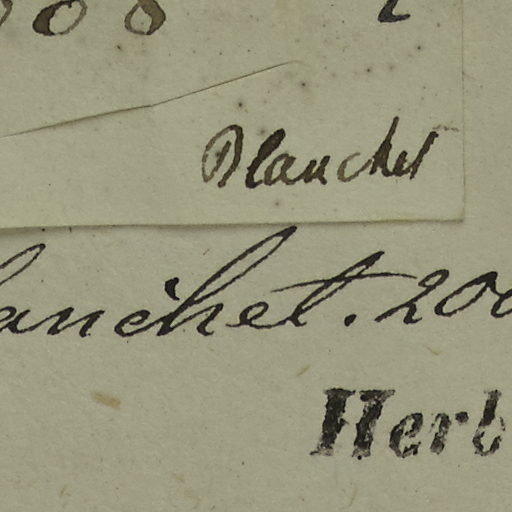 Blanchet
lanchet. 200
Herb